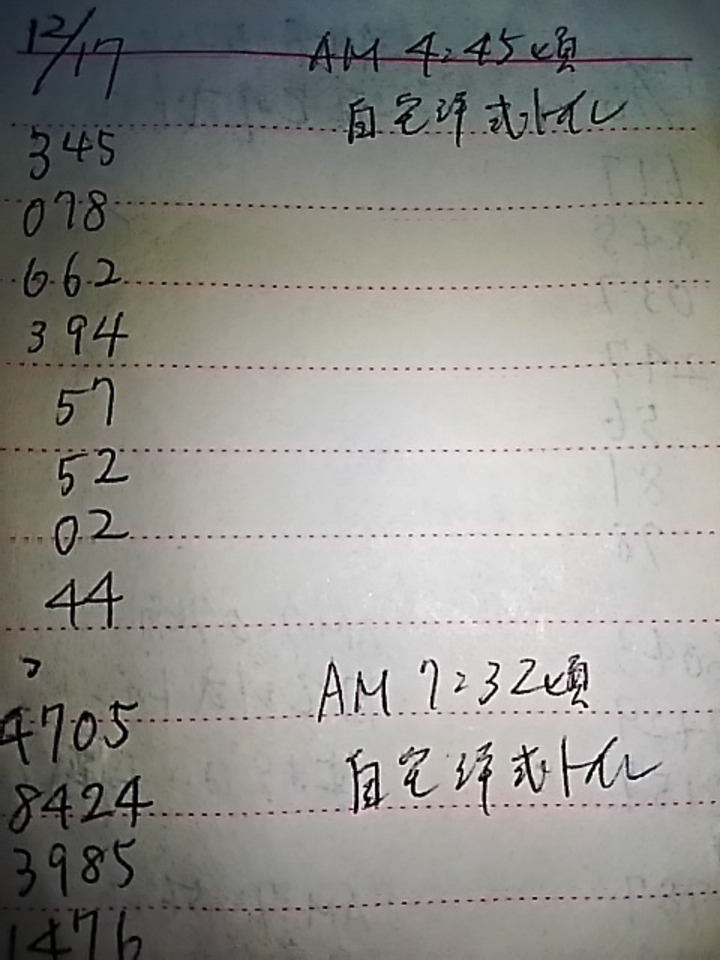 12/17 AM 4:45頃
自宅洋式トイレ
345
078
662
394
57
52
02
44
〃 AM 7:32頃
4705
自宅洋式トイレ
8424
3985
1476